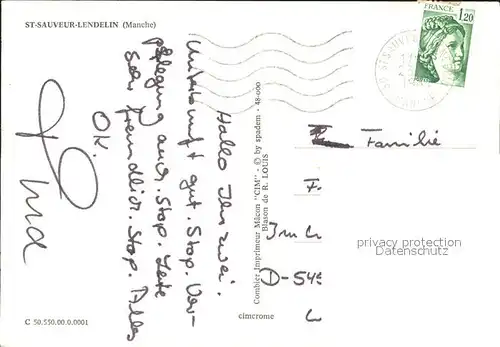 ST-SAUVEUR-LENDELIN (Manche)
Hallo Ihr zwei.
Unterkunft gut. Stop. Ver-
pflegung auch. Stop. Leute
sehr freundlich. Stop. Alles
OK
Combier Imprimeur Mâcon "CIM" - © by spadem - 48-000
Blason de R. LOUIS
FRANCE
1,20
ST SAUVEUR
Familie
F.
D-54
privacy protection
VEREMOND
C 50.550.00.0.0001
cimcrome